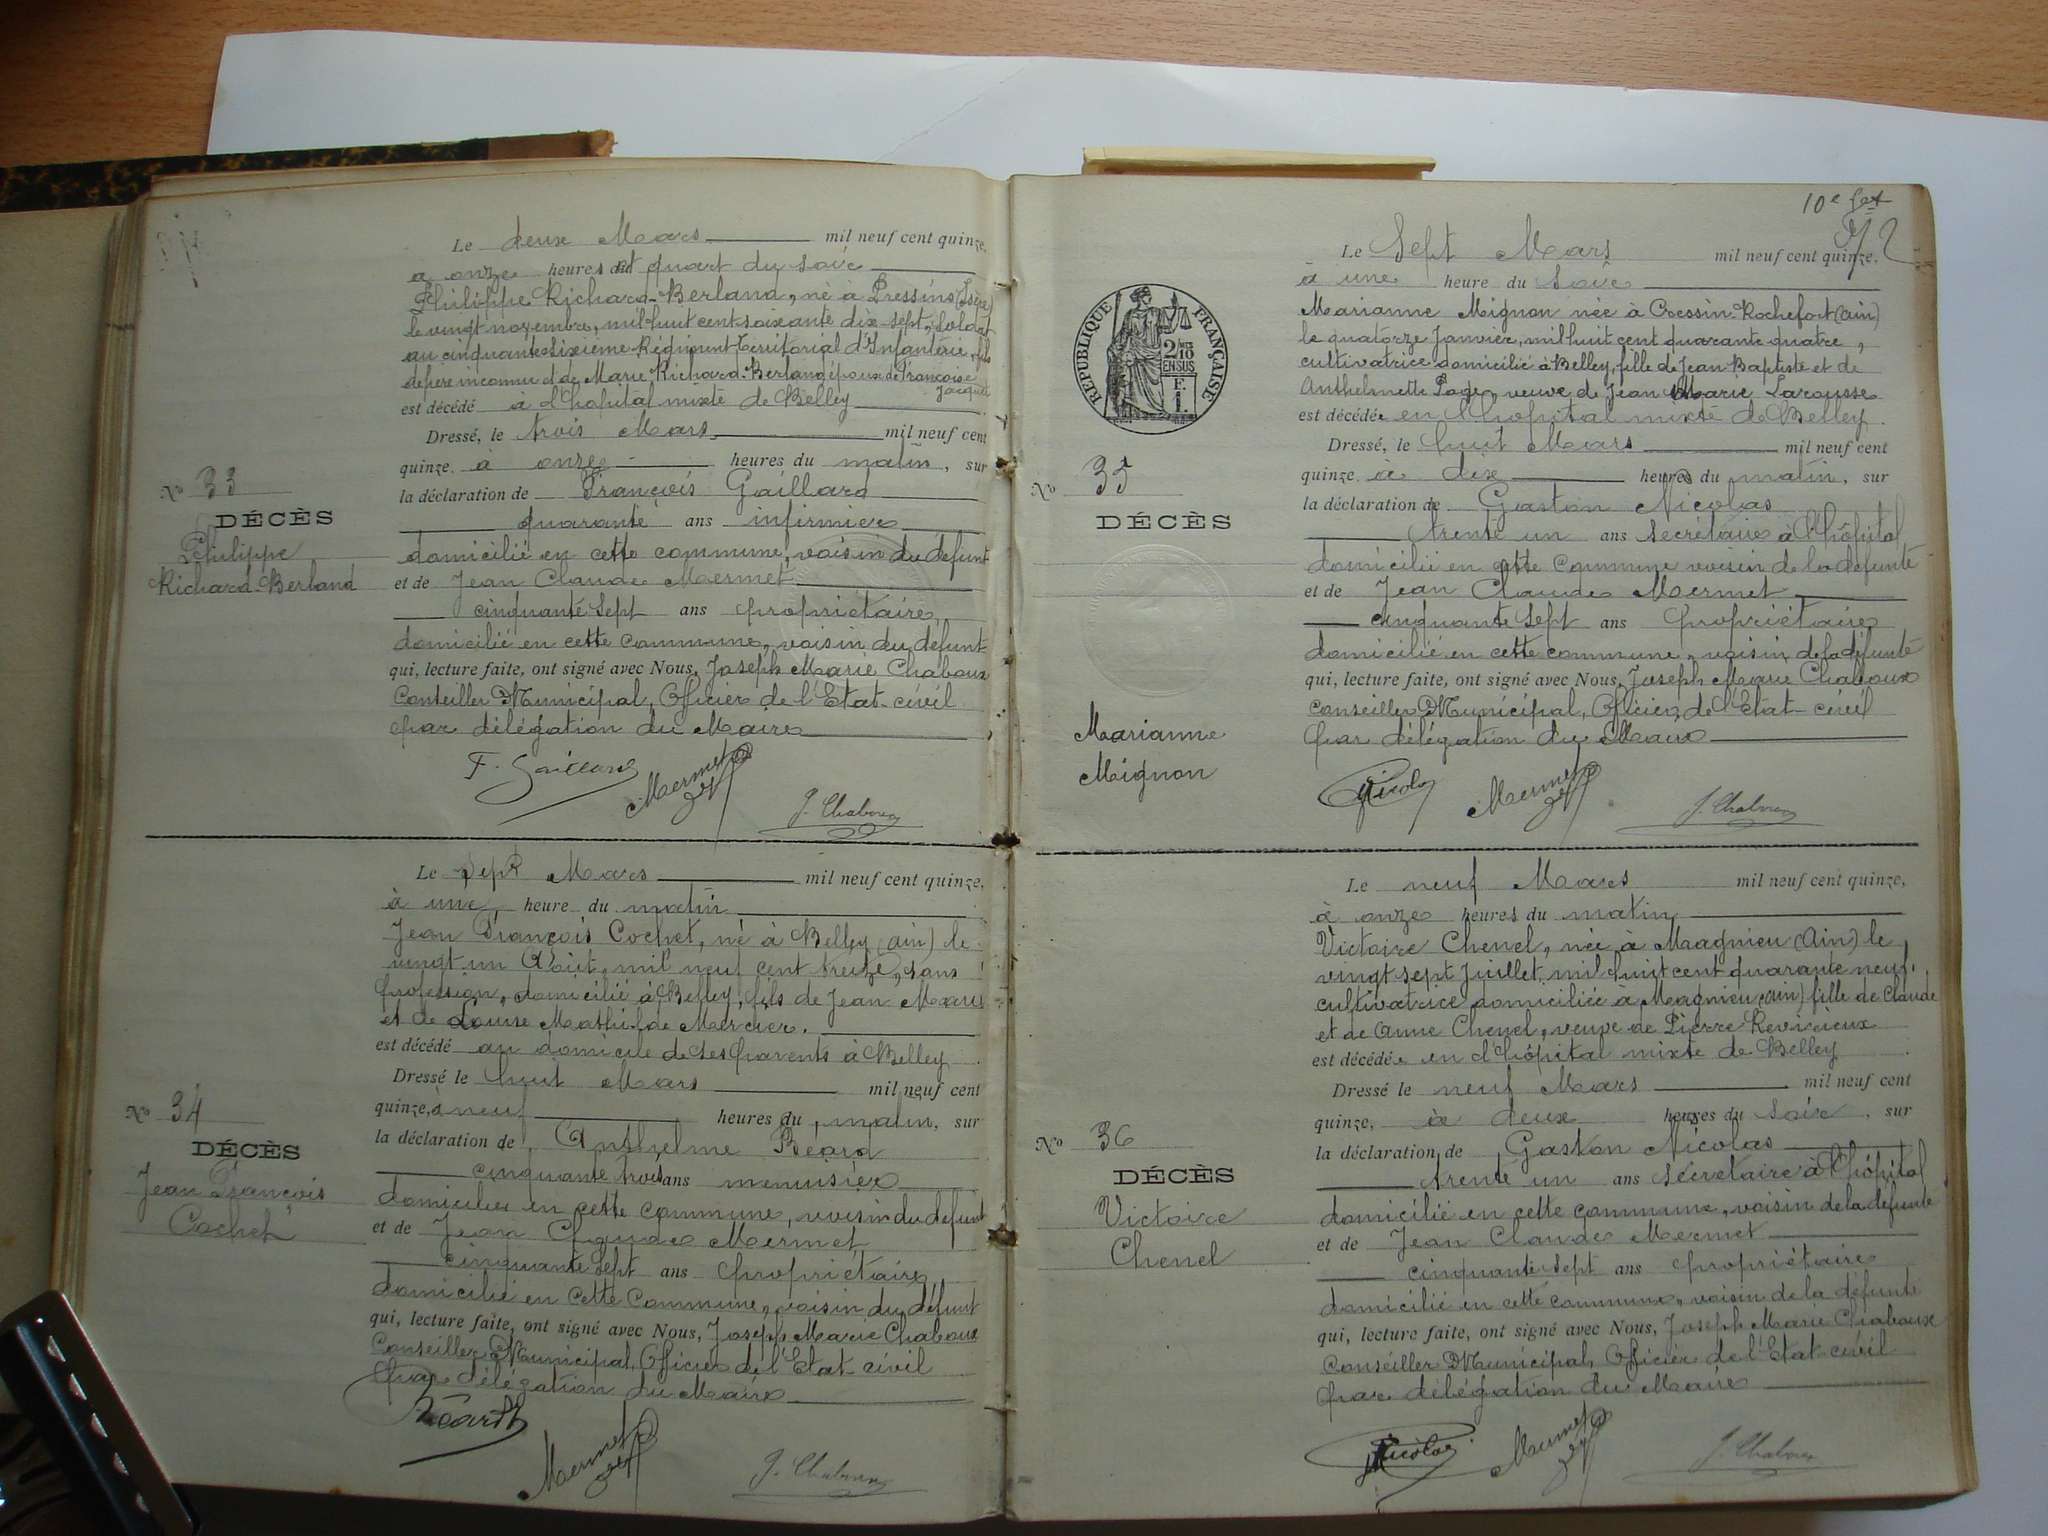 Le deux Mars mil neuf cent quinze,
à onze heures et quart du soir
Philippe Richard-Berland, né à Pressins (Isère)
le vingt novembre, mil huit cent soixante dix-sept, soldat
au cinquante sixième Régiment Territorial d'Infanterie, fils
de père inconnu et de Marie Richard-Berland époux de Françoise
Jacquet
est décédé à l'hôpital mixte de Belley
Dressé, le trois Mars mil neuf cent
quinze, à onze heures du matin, sur
la déclaration de François Gaillard
quarante ans infirmier
domicilié en cette commune, voisin du défunt
et de Jean Claude Mermet
cinquante sept ans propriétaire,
domicilié en cette commune, voisin du défunt
qui, lecture faite, ont signé avec Nous, Joseph Marie Chaboux
Conseiller Municipal, Officier de l'Etat-civil
par délégation du Maire
F. Gaillard Mermet J. Chaboux
No 33
DÉCÈS
Philippe
Richard-Berland
Le sept Mars mil neuf cent quinze,
à une heure du matin
Jean François Cochet, né à Belley (ain) le
vingt un Août, mil neuf cent treize, sans
profession, domicilié à Belley, fils de Jean Marie
et de Louise Mathilde Mercier.
est décédé au domicile de ses parents à Belley
Dressé le huit Mars mil neuf cent
quinze, à neuf heures du matin, sur
la déclaration de Anthelme Béard
cinquante trois ans menuisier
domicilié en cette commune, voisin du défunt
et de Jean Claude Mermet
cinquante sept ans propriétaire,
domicilié en cette commune, voisin du défunt
qui, lecture faite, ont signé avec Nous, Joseph Marie Chaboux
Conseiller Municipal, Officier de l'Etat-civil
par délégation du Maire
Béard Mermet J. Chaboux
No 34
DÉCÈS
Jean François
Cochet
10e
RÉPUBLIQUE FRANÇAISE
2/10
EN SUS
F.
I.
Le Sept Mars mil neuf cent quinze,
à une heure du soir
Marianne Mignon née à Cressin-Rochefort (ain)
le quatorze Janvier, mil huit cent quarante quatre,
cultivatrice domicilié à Belley, fille de Jean Baptiste et de
Anthelmette Page, veuve de Jean Marie Larousse
est décédée en l'hôpital mixte de Belley
Dressé, le huit Mars mil neuf cent
quinze à dix heures du matin, sur
la déclaration de Gaston Nicolas
trente un ans secrétaire à l'hôpital
domicilié en cette commune voisin de la défunte
et de Jean Claude Mermet
cinquante sept ans propriétaire
domicilié en cette commune, voisin de la défunte
qui, lecture faite, ont signé avec Nous, Joseph Marie Chaboux
Conseiller Municipal, Officier de l'Etat-civil
par délégation du Maire
Nicolas Mermet J. Chaboux
No 35
DÉCÈS
Marianne
Mignon
Le neuf Mars mil neuf cent quinze,
à onze heures du matin
Victoire Chenel, née à Magnieu (Ain) le
vingt sept Juillet mil huit cent quarante neuf,
cultivatrice domiciliée à Magnieu (ain) fille de Claude
et de Anne Chenel, veuve de Pierre Revirieux
est décédée en l'hôpital mixte de Belley
Dressé le neuf Mars mil neuf cent
quinze, à deux heures du soir, sur
la déclaration de Gaston Nicolas
trente un ans secrétaire à l'hôpital
domicilié en cette commune, voisin de la défunte
et de Jean Claude Mermet
cinquante sept ans propriétaire
domicilié en cette commune, voisin de la défunte
qui, lecture faite, ont signé avec Nous, Joseph Marie Chaboux
Conseiller Municipal, Officier de l'Etat-civil
par délégation du Maire
Nicolas Mermet J. Chaboux
No 36
DÉCÈS
Victoire
Chenel